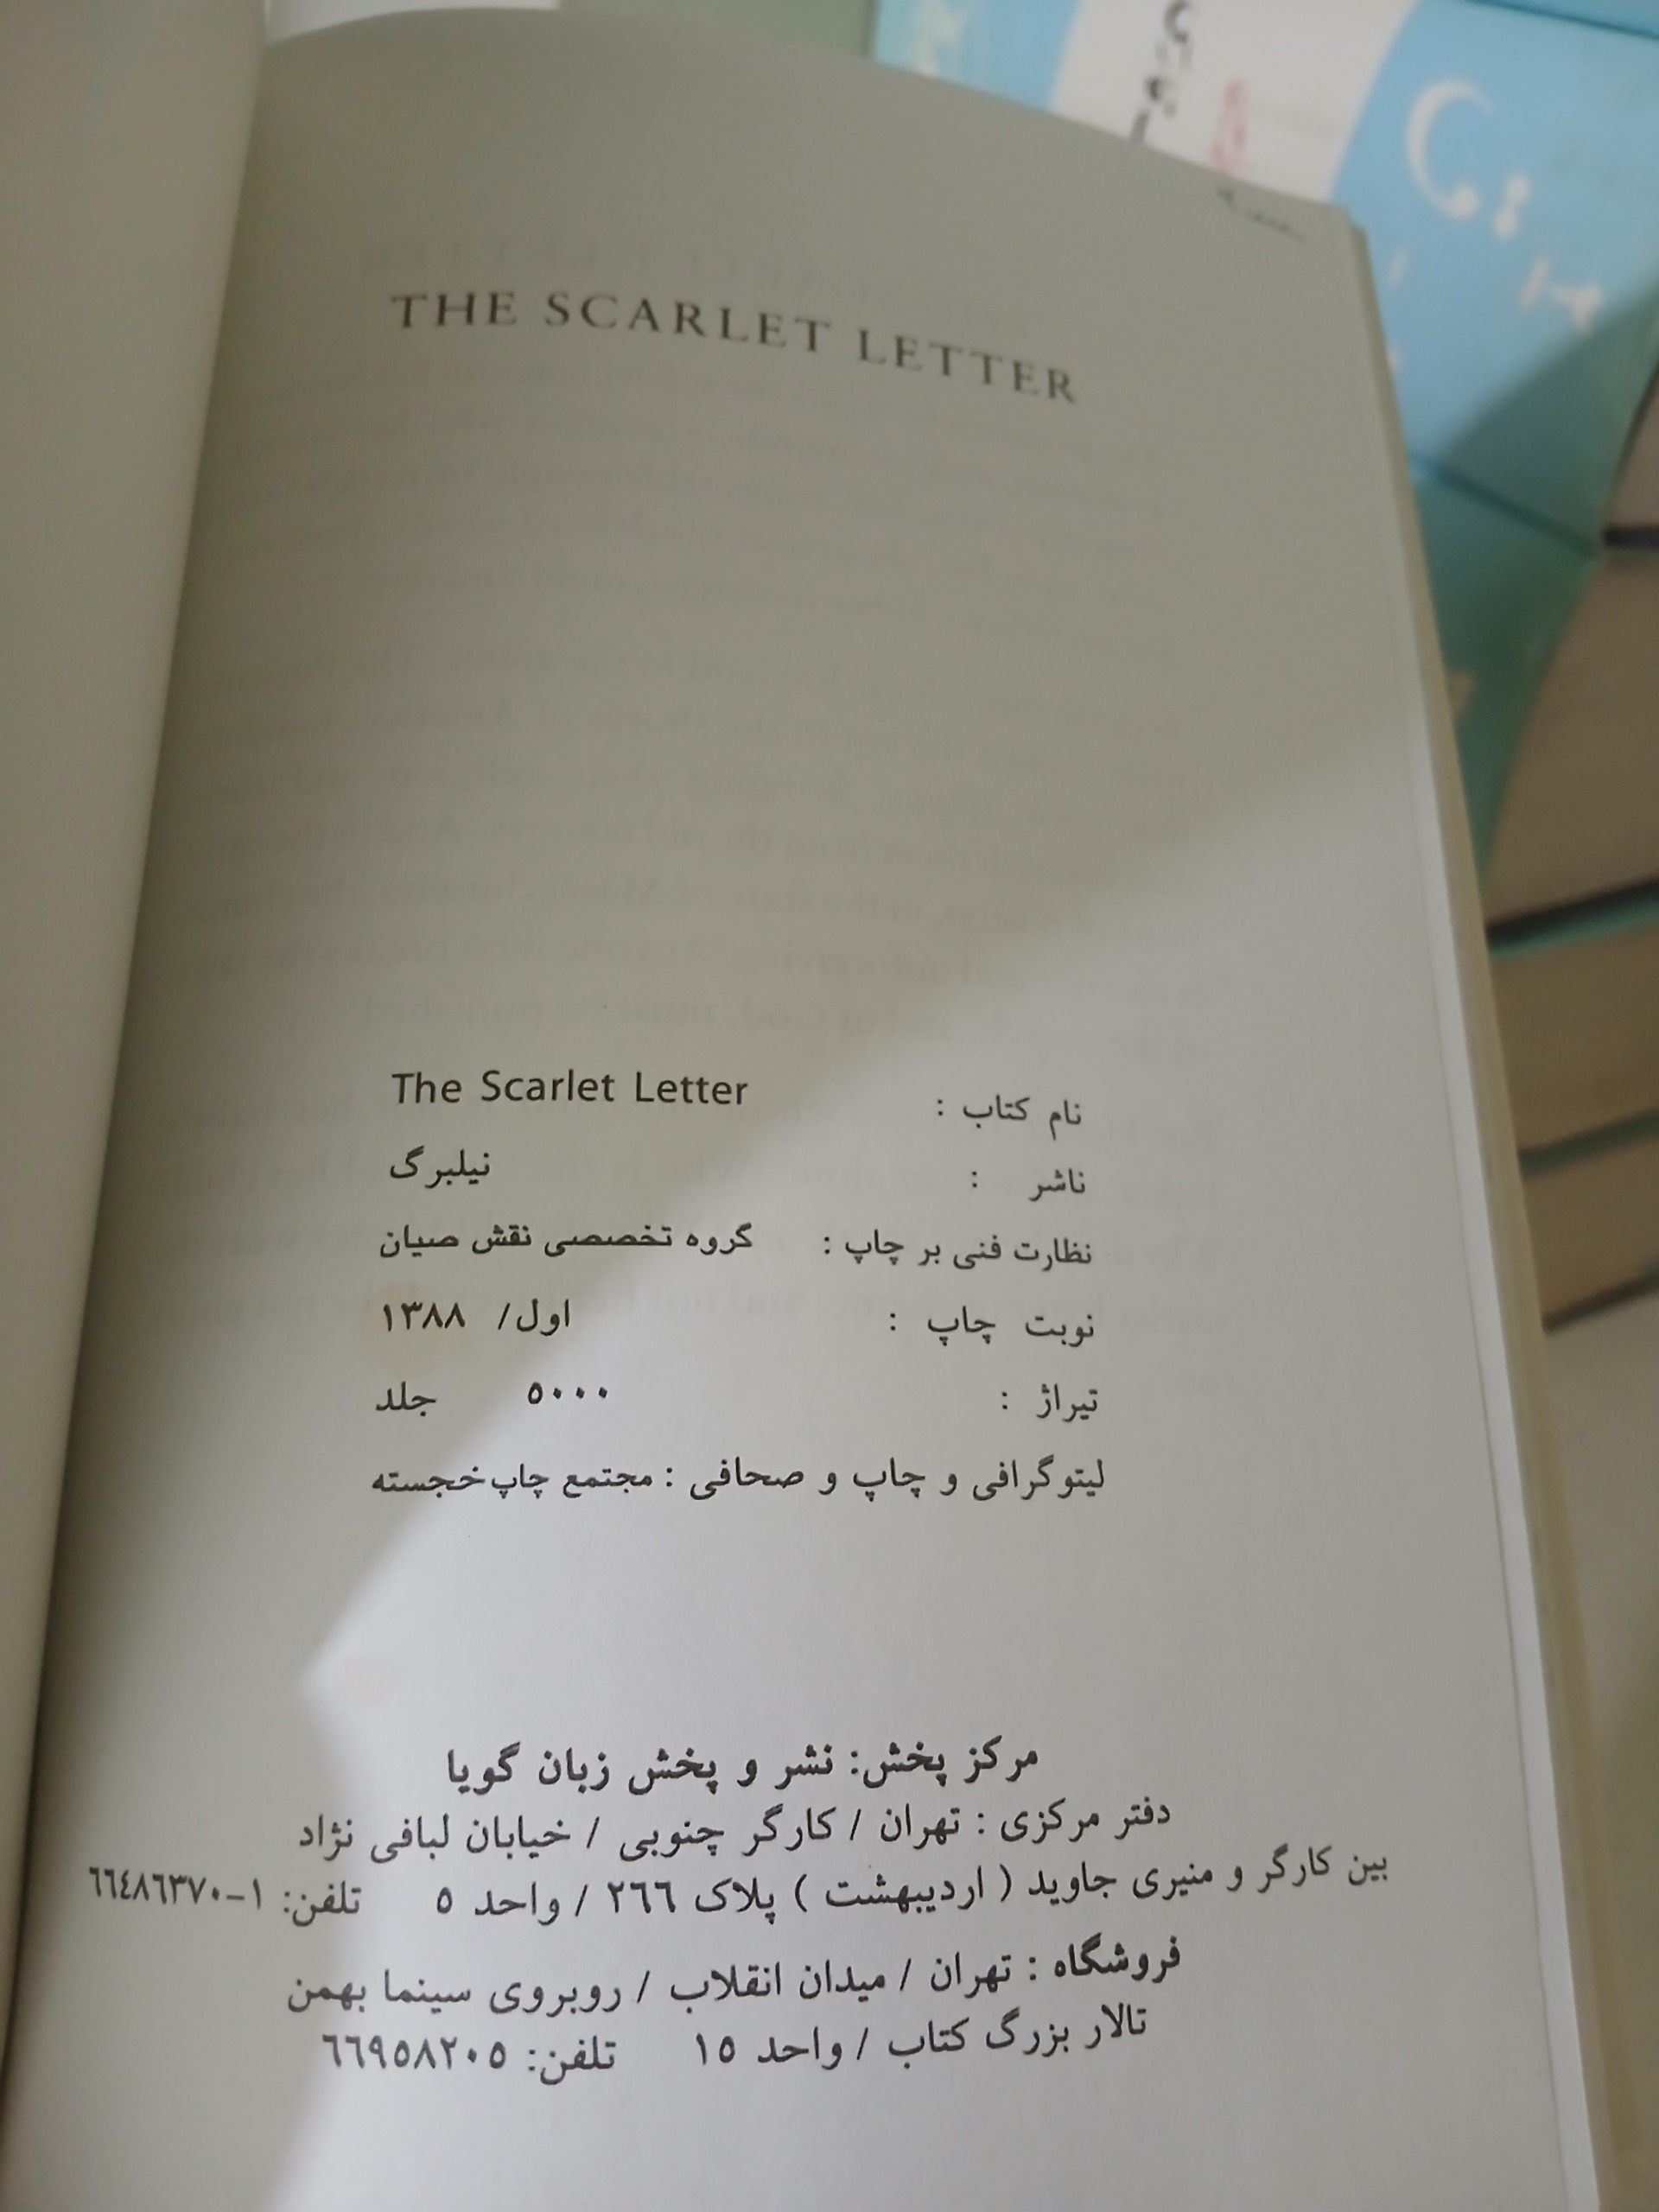 THE SCARLET LETTER
نام کتاب : The Scarlet Letter
ناشر : نیلبرگ
نظارت فنی بر چاپ : گروه تخصصی نقش صیان
نوبت چاپ : اول/ ۱۳۸۸
تیراژ : ۵۰۰۰ جلد
لیتوگرافی و چاپ و صحافی : مجتمع چاپ خجسته
مرکز پخش: نشر و پخش زبان گویا
دفتر مرکزی : تهران / کارگر جنوبی / خیابان لبافی نژاد
بین کارگر و منیری جاوید ( اردیبهشت ) پلاک ٢٦٦ / واحد ٥ تلفن: ١-٦٦٤٨٦٣٧٠
فروشگاه : تهران / میدان انقلاب / روبروی سینما بهمن
تالار بزرگ کتاب / واحد ١٥ تلفن: ٦٦٩٥٨٢٠٥